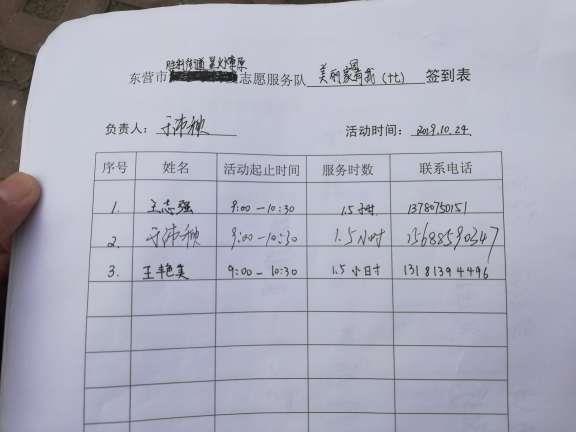 胜利街道 星火燎原
东营市 志愿服务队 美丽家园有我(十七) 签到表
负责人: 于沛顺 活动时间: 2019.10.24.
序号 姓名 活动起止时间 服务时数 联系电话
1. 王志强 9:00-10:30 1.5小时 13780750151
2. 于沛顺 9:00-10:30 1.5小时 15688590347
3. 王艳美 9:00-10:30 1.5小时 13181394496